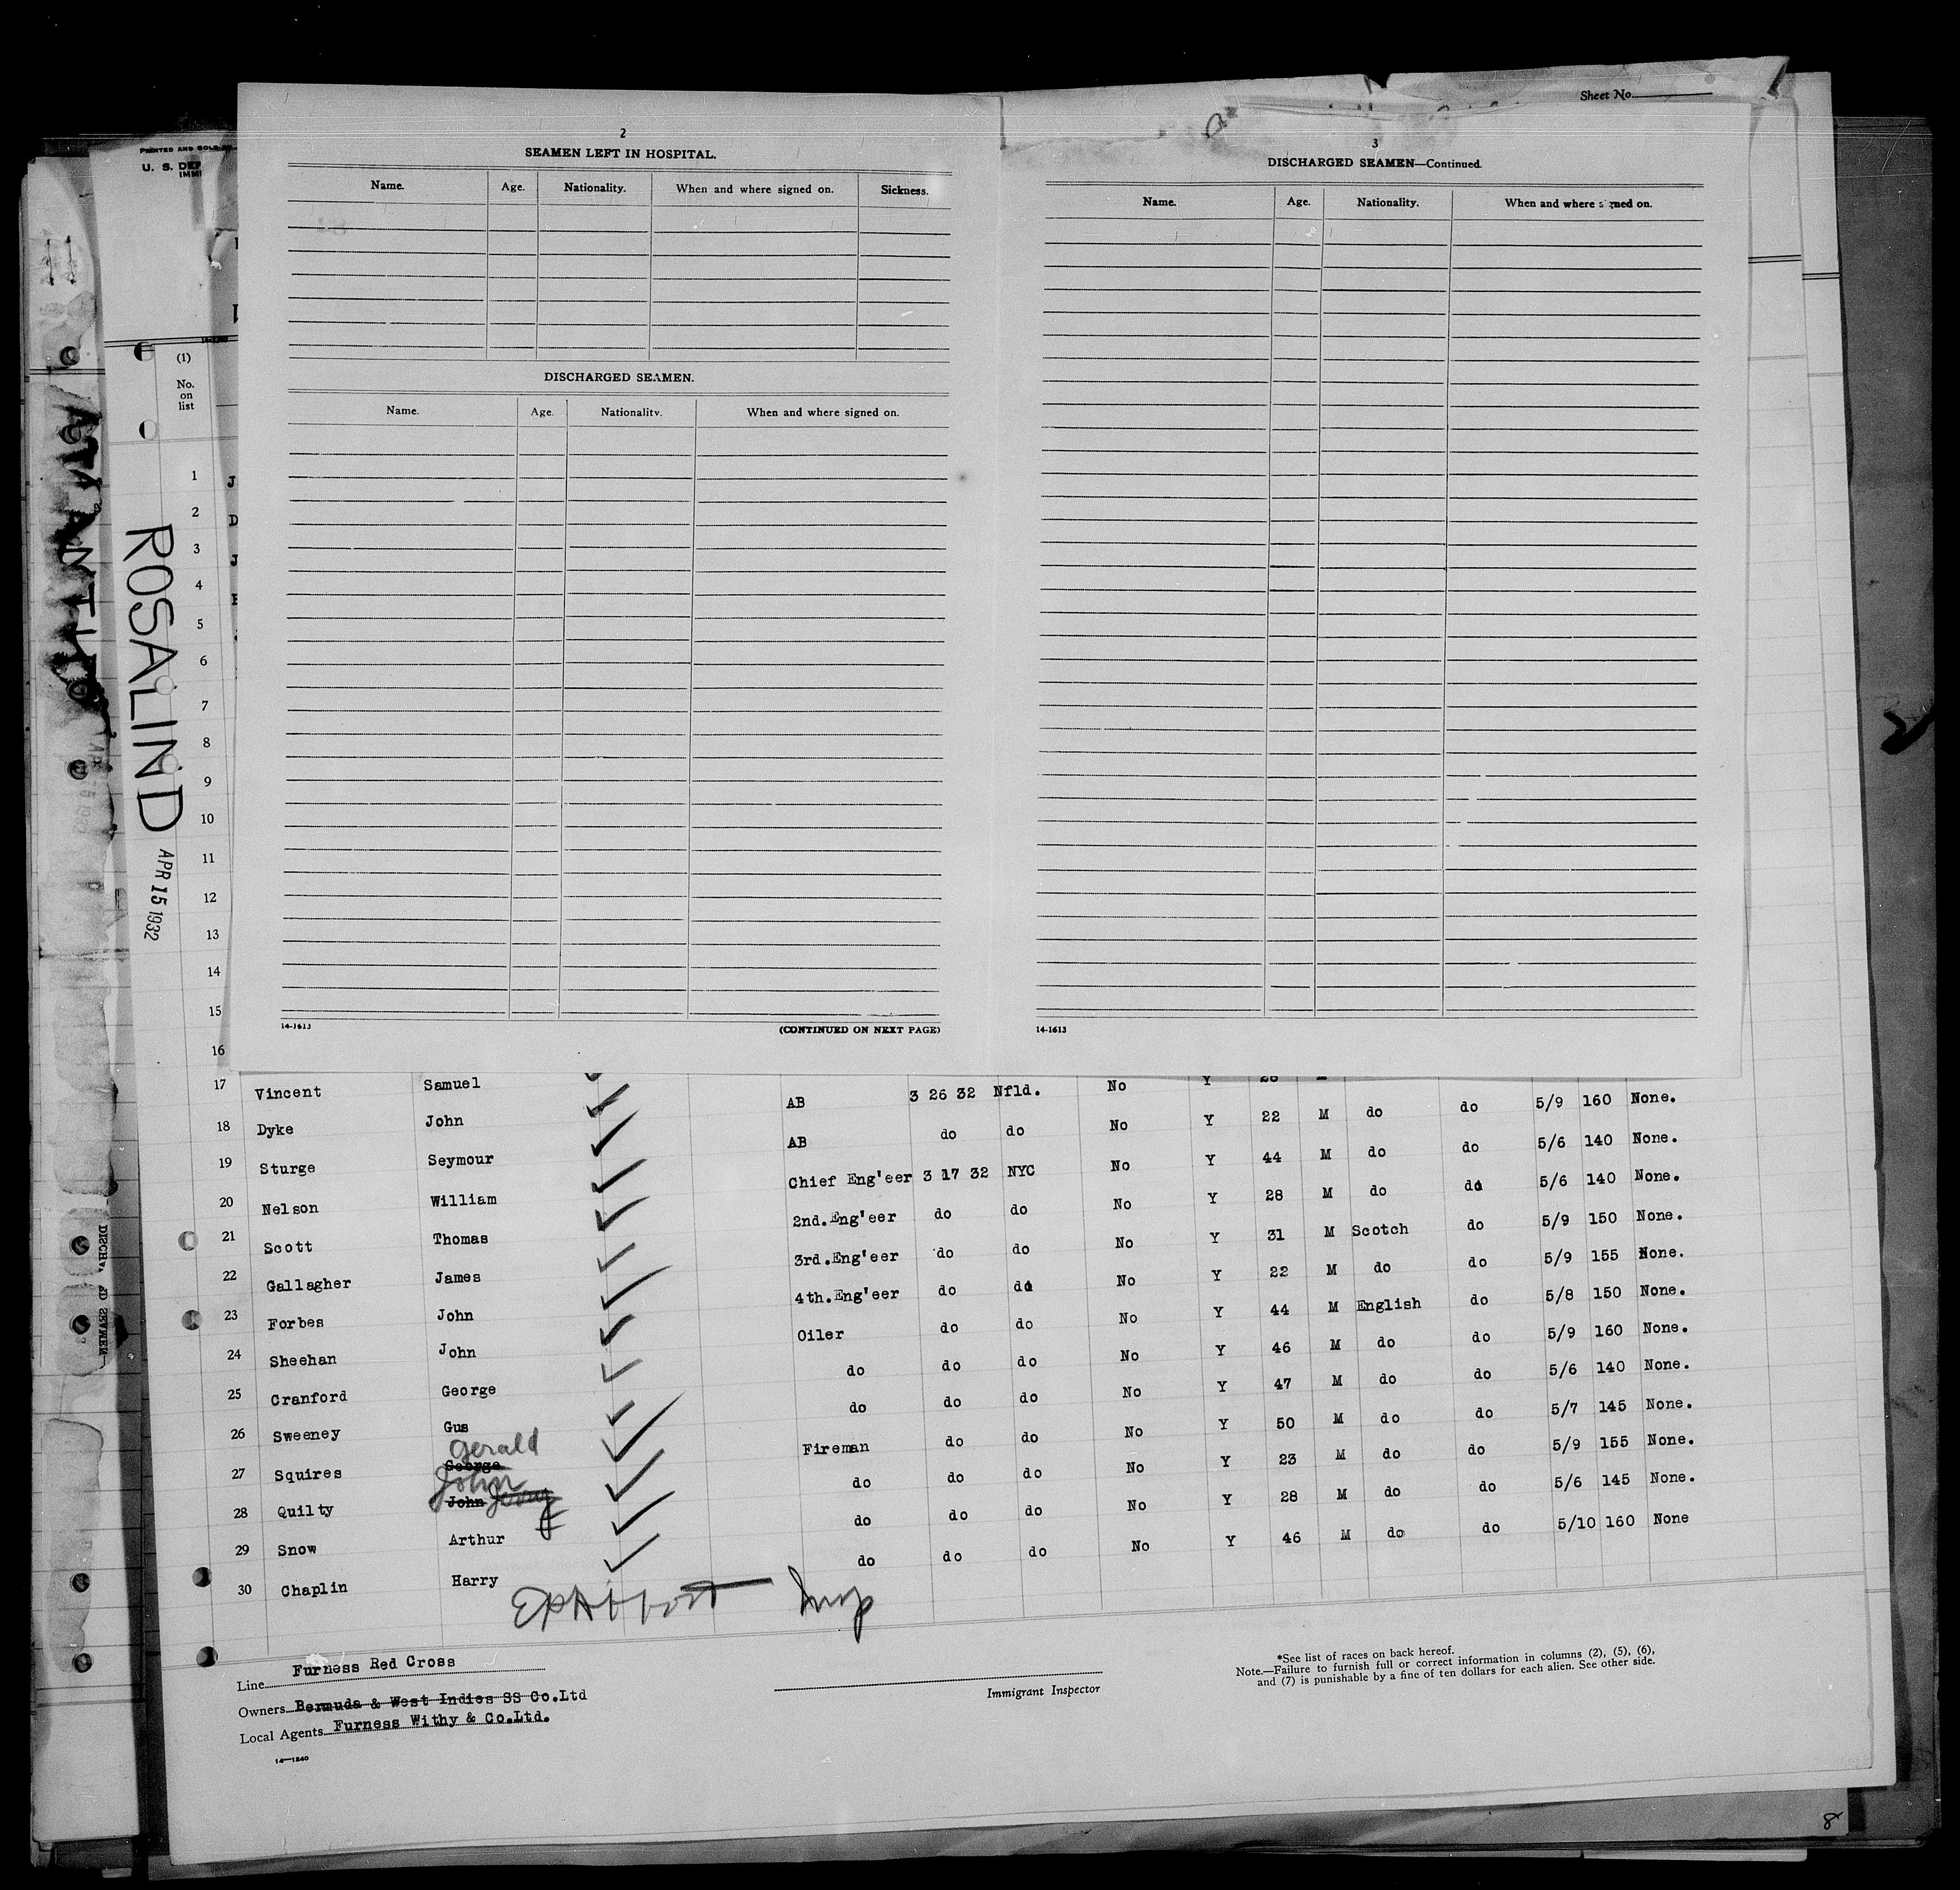 Sheet No.
2
SEAMEN LEFT IN HOSPITAL.
Name. Age. Nationality. When and where signed on. Sickness.
DISCHARGED SEAMEN.
Name. Age. Nationality. When and where signed on.
14-1613 (CONTINUED ON NEXT PAGE)
3
DISCHARGED SEAMEN—Continued.
Name. Age. Nationality. When and where signed on.
14-1613
PRINTED AND SOLD
U. S. DEP
IMMI
(1)
No.
on
list
ROSALIND
APR 15 1932
1
2
3
4
5
6
7
8
9
10
11
12
13
14
15
16
17 Vincent Samuel
18 Dyke John AB 3 26 32 Nfld. No Y 28 M
19 Sturge Seymour AB do do No Y 22 M do do 5/9 160 None.
20 Nelson William Chief Eng'eer 3 17 32 NYC No Y 44 M do do 5/6 140 None.
21 Scott Thomas 2nd.Eng'eer do do No Y 28 M do do 5/6 140 None.
22 Gallagher James 3rd.Eng'eer do do No Y 31 M Scotch do 5/9 150 None.
23 Forbes John 4th.Eng'eer do do No Y 22 M do do 5/9 155 None.
24 Sheehan John Oiler do do No Y 44 M English do 5/8 150 None.
25 Cranford George do do do No Y 46 M do do 5/9 160 None.
26 Sweeney Gus do do do No Y 47 M do do 5/6 140 None.
27 Squires George Gerald Fireman do do No Y 50 M do do 5/7 145 None.
28 Quilty John John do do do No Y 23 M do do 5/9 155 None.
29 Snow Arthur do do do No Y 28 M do do 5/6 145 None.
30 Chaplin Harry do do do No Y 46 M do do 5/10 160 None
Line Furness Red Cross
Owners Bermuda & West Indies SS Co.Ltd
Local Agents Furness Withy & Co.Ltd.
14—1240
Immigrant Inspector
*See list of races on back hereof.
Note.—Failure to furnish full or correct information in columns (2), (5), (6),
and (7) is punishable by a fine of ten dollars for each alien. See other side.
8